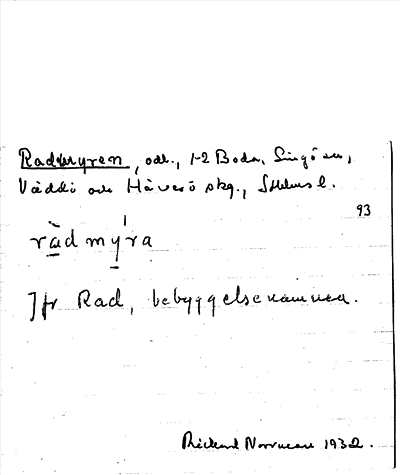 Radmyren, odl., 1-2 Boda, Singö sn,
Väddö och Häverö skg., Sthlms l.
93
ràdmýra
Jfr Rad, bebyggelsenamnen.
Rickard Norrman 1932.